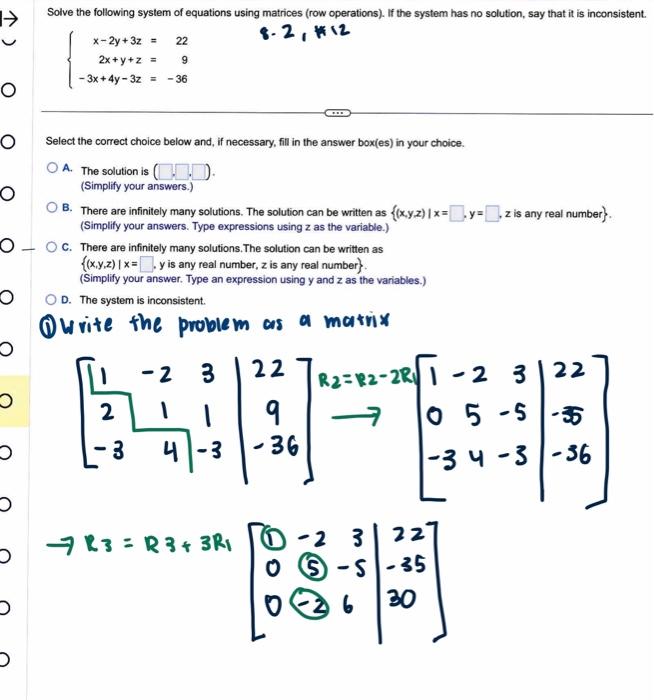 Solve the following system of equations using matrices (row operations). If the system has no solution, say that it is inconsistent.
8.2, #12
x - 2y + 3z = 22
2x + y + z = 9
- 3x + 4y - 3z = - 36
Select the correct choice below and, if necessary, fill in the answer box(es) in your choice.
A. The solution is ( , , ).
(Simplify your answers.)
B. There are infinitely many solutions. The solution can be written as {(x,y,z) | x = , y = , z is any real number}.
(Simplify your answers. Type expressions using z as the variable.)
C. There are infinitely many solutions.The solution can be written as
{(x,y,z) | x = , y is any real number, z is any real number}.
(Simplify your answer. Type an expression using y and z as the variables.)
D. The system is inconsistent.
① Write the problem as a matrix
1 -2 3 | 22
2 1 1 | 9
-3 4 -3 | -36
R2=R2-2R1 →
1 -2 3 | 22
0 5 -5 | -35
-3 4 -3 | -36
→ R3 = R3 + 3R1
1 -2 3 | 22
0 5 -5 | -35
0 -2 6 | 30